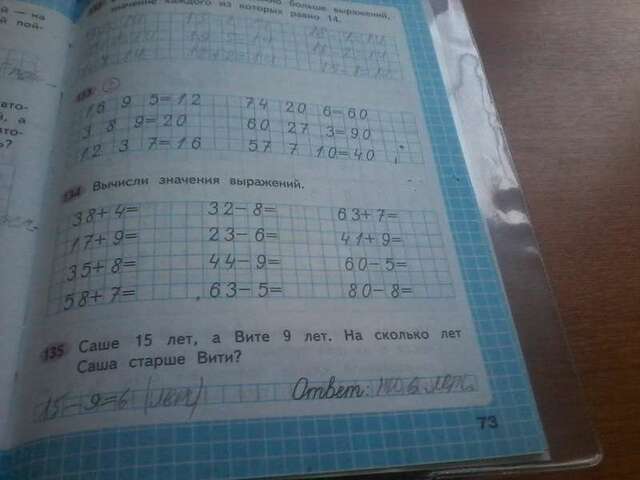 больше выражений,
значение каждого из которых равно 14.
й — на
й пой-
133
16 9 5=12 74 20 6=60
3 8 9=20 60 27 3=90
12 3 7=16 57 7 10=40
вто-
й, а
вто-
ь?
134 Вычисли значения выражений.
38+4= 32−8= 63+7=
17+9= 23−6= 41+9=
35+8= 44−9= 60−5=
58+7= 63−5= 80−8=
135 Саше 15 лет, а Вите 9 лет. На сколько лет
Саша старше Вити?
15−9=6 (лет) Ответ: на 6 лет.
73